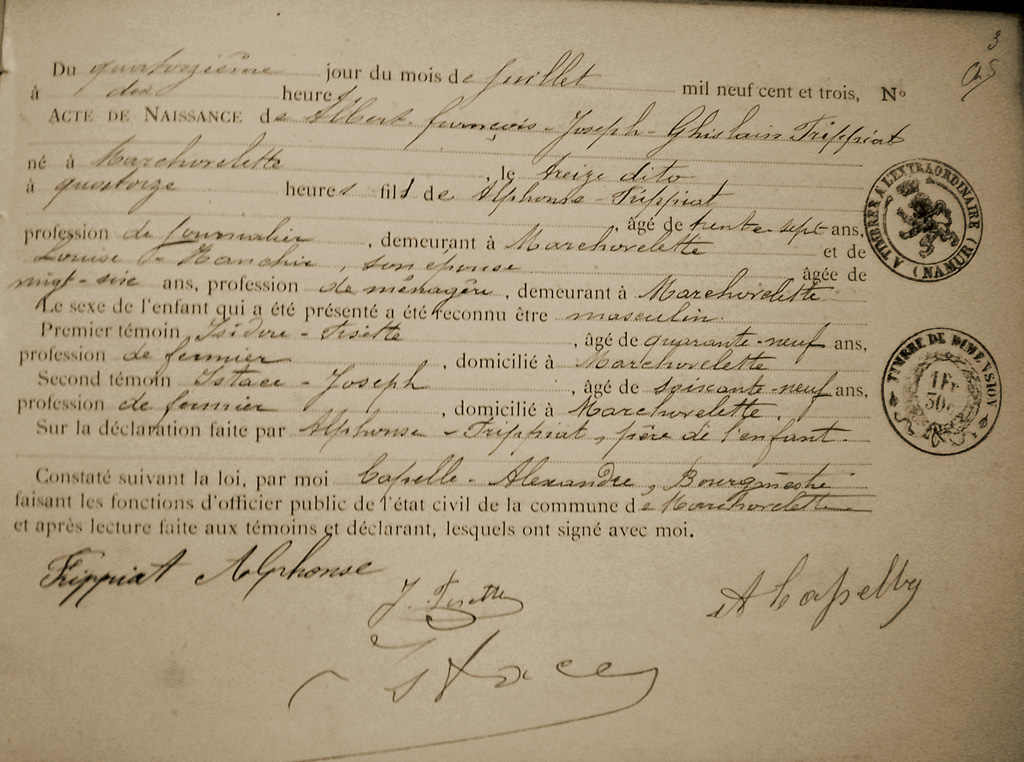 3
Du quatorzième jour du mois de juillet mil neuf cent et trois, N°
à dix heures
ACTE DE NAISSANCE de Albert françois - Joseph - Ghislain Frippiat
né à Marchovelette, le treize dito
à quatorze heures fils de Alphonse - Frippiat
âgé de trente-sept ans,
profession de journalier, demeurant à Marchovelette et de
Louise - Hanchir, son épouse âgée de
vingt-six ans, profession de ménagère, demeurant à Marchovelette.
Le sexe de l'enfant qui a été présenté a été reconnu être masculin.
Premier témoin Isidore - Fisette, âgé de quarante-neuf ans,
profession de fermier, domicilié à Marchovelette
Second témoin Istace - Joseph, âgé de soixante-neuf ans,
profession de fermier, domicilié à Marchovelette.
Sur la déclaration faite par Alphonse - Frippiat, père de l'enfant.
Constaté suivant la loi, par moi Capelle - Alexandre, Bourgmestre
faisant les fonctions d'officier public de l'état civil de la commune de Marchovelette
et après lecture faite aux témoins et déclarant, lesquels ont signé avec moi.
A TIMBRER A L'EXTRAORDINAIRE (NAMUR)
TIMBRE DE DIMENSION
1 FR
30
Frippiat Alphonse
J. Fisette
A Capelle
Istace